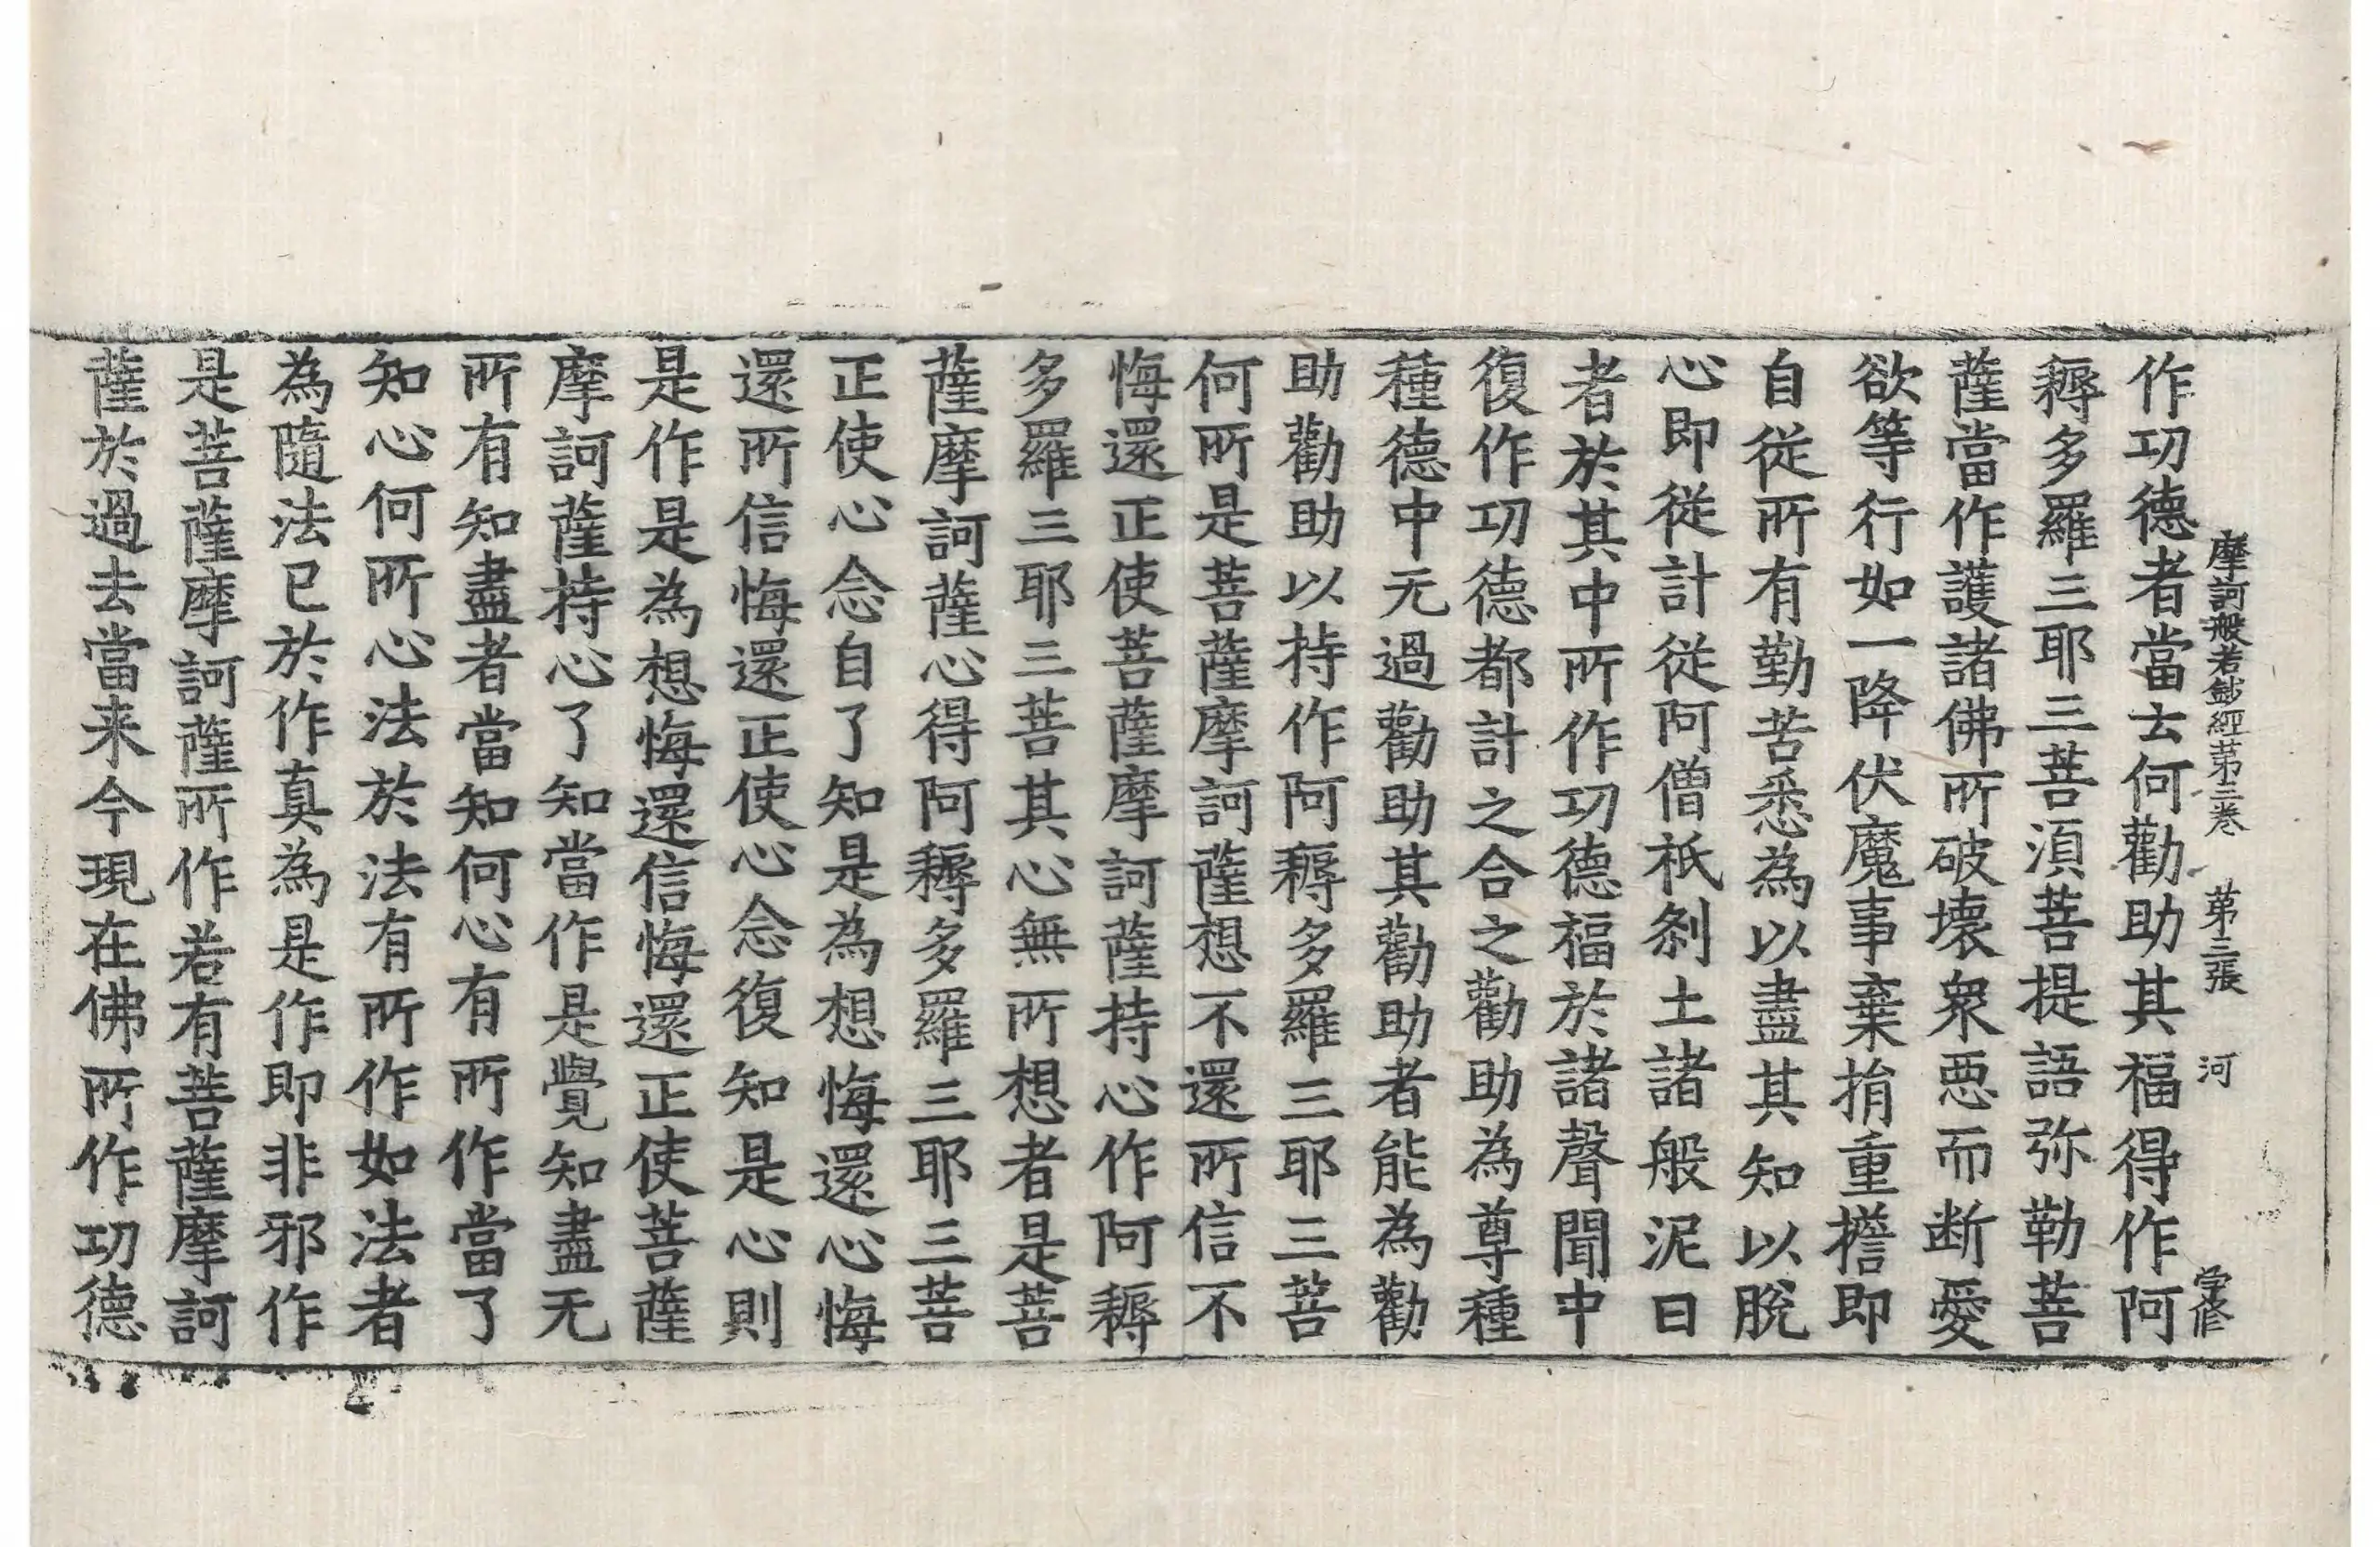 摩訶般若鈔經第三卷　第三張　河　学修
作功德者當去何勸助其福得作阿
耨多羅三耶三菩須菩提語弥勒菩
薩當作護諸佛所破壞衆惡而断愛
欲等行如一降伏魔事棄捐重擔即
自從所有勤苦悉為以盡其知以脫
心即從計從阿僧祇剎土諸般泥曰
者於其中所作功德福於諸聲聞中
復作功德都計之合之勸助為尊種
種德中无過勸助其勸助者能為勸
助勸助以持作阿耨多羅三耶三菩
何所是菩薩摩訶薩想不還所信不
悔還正使菩薩摩訶薩持心作阿耨
多羅三耶三菩其心無所想者是菩
薩摩訶薩心得阿耨多羅三耶三菩
正使心念自了知是為想悔還心悔
還所信悔還正使心念復知是心則
是作是為想悔還信悔還正使菩薩
摩訶薩持心了知當作是覺知盡无
所有知盡者當知何心有所作當了
知心何所心法於法有所作如法者
為隨法已於作真為是作即非邪作
是菩薩摩訶薩所作若有菩薩摩訶
薩於過去當来今現在佛所作功德